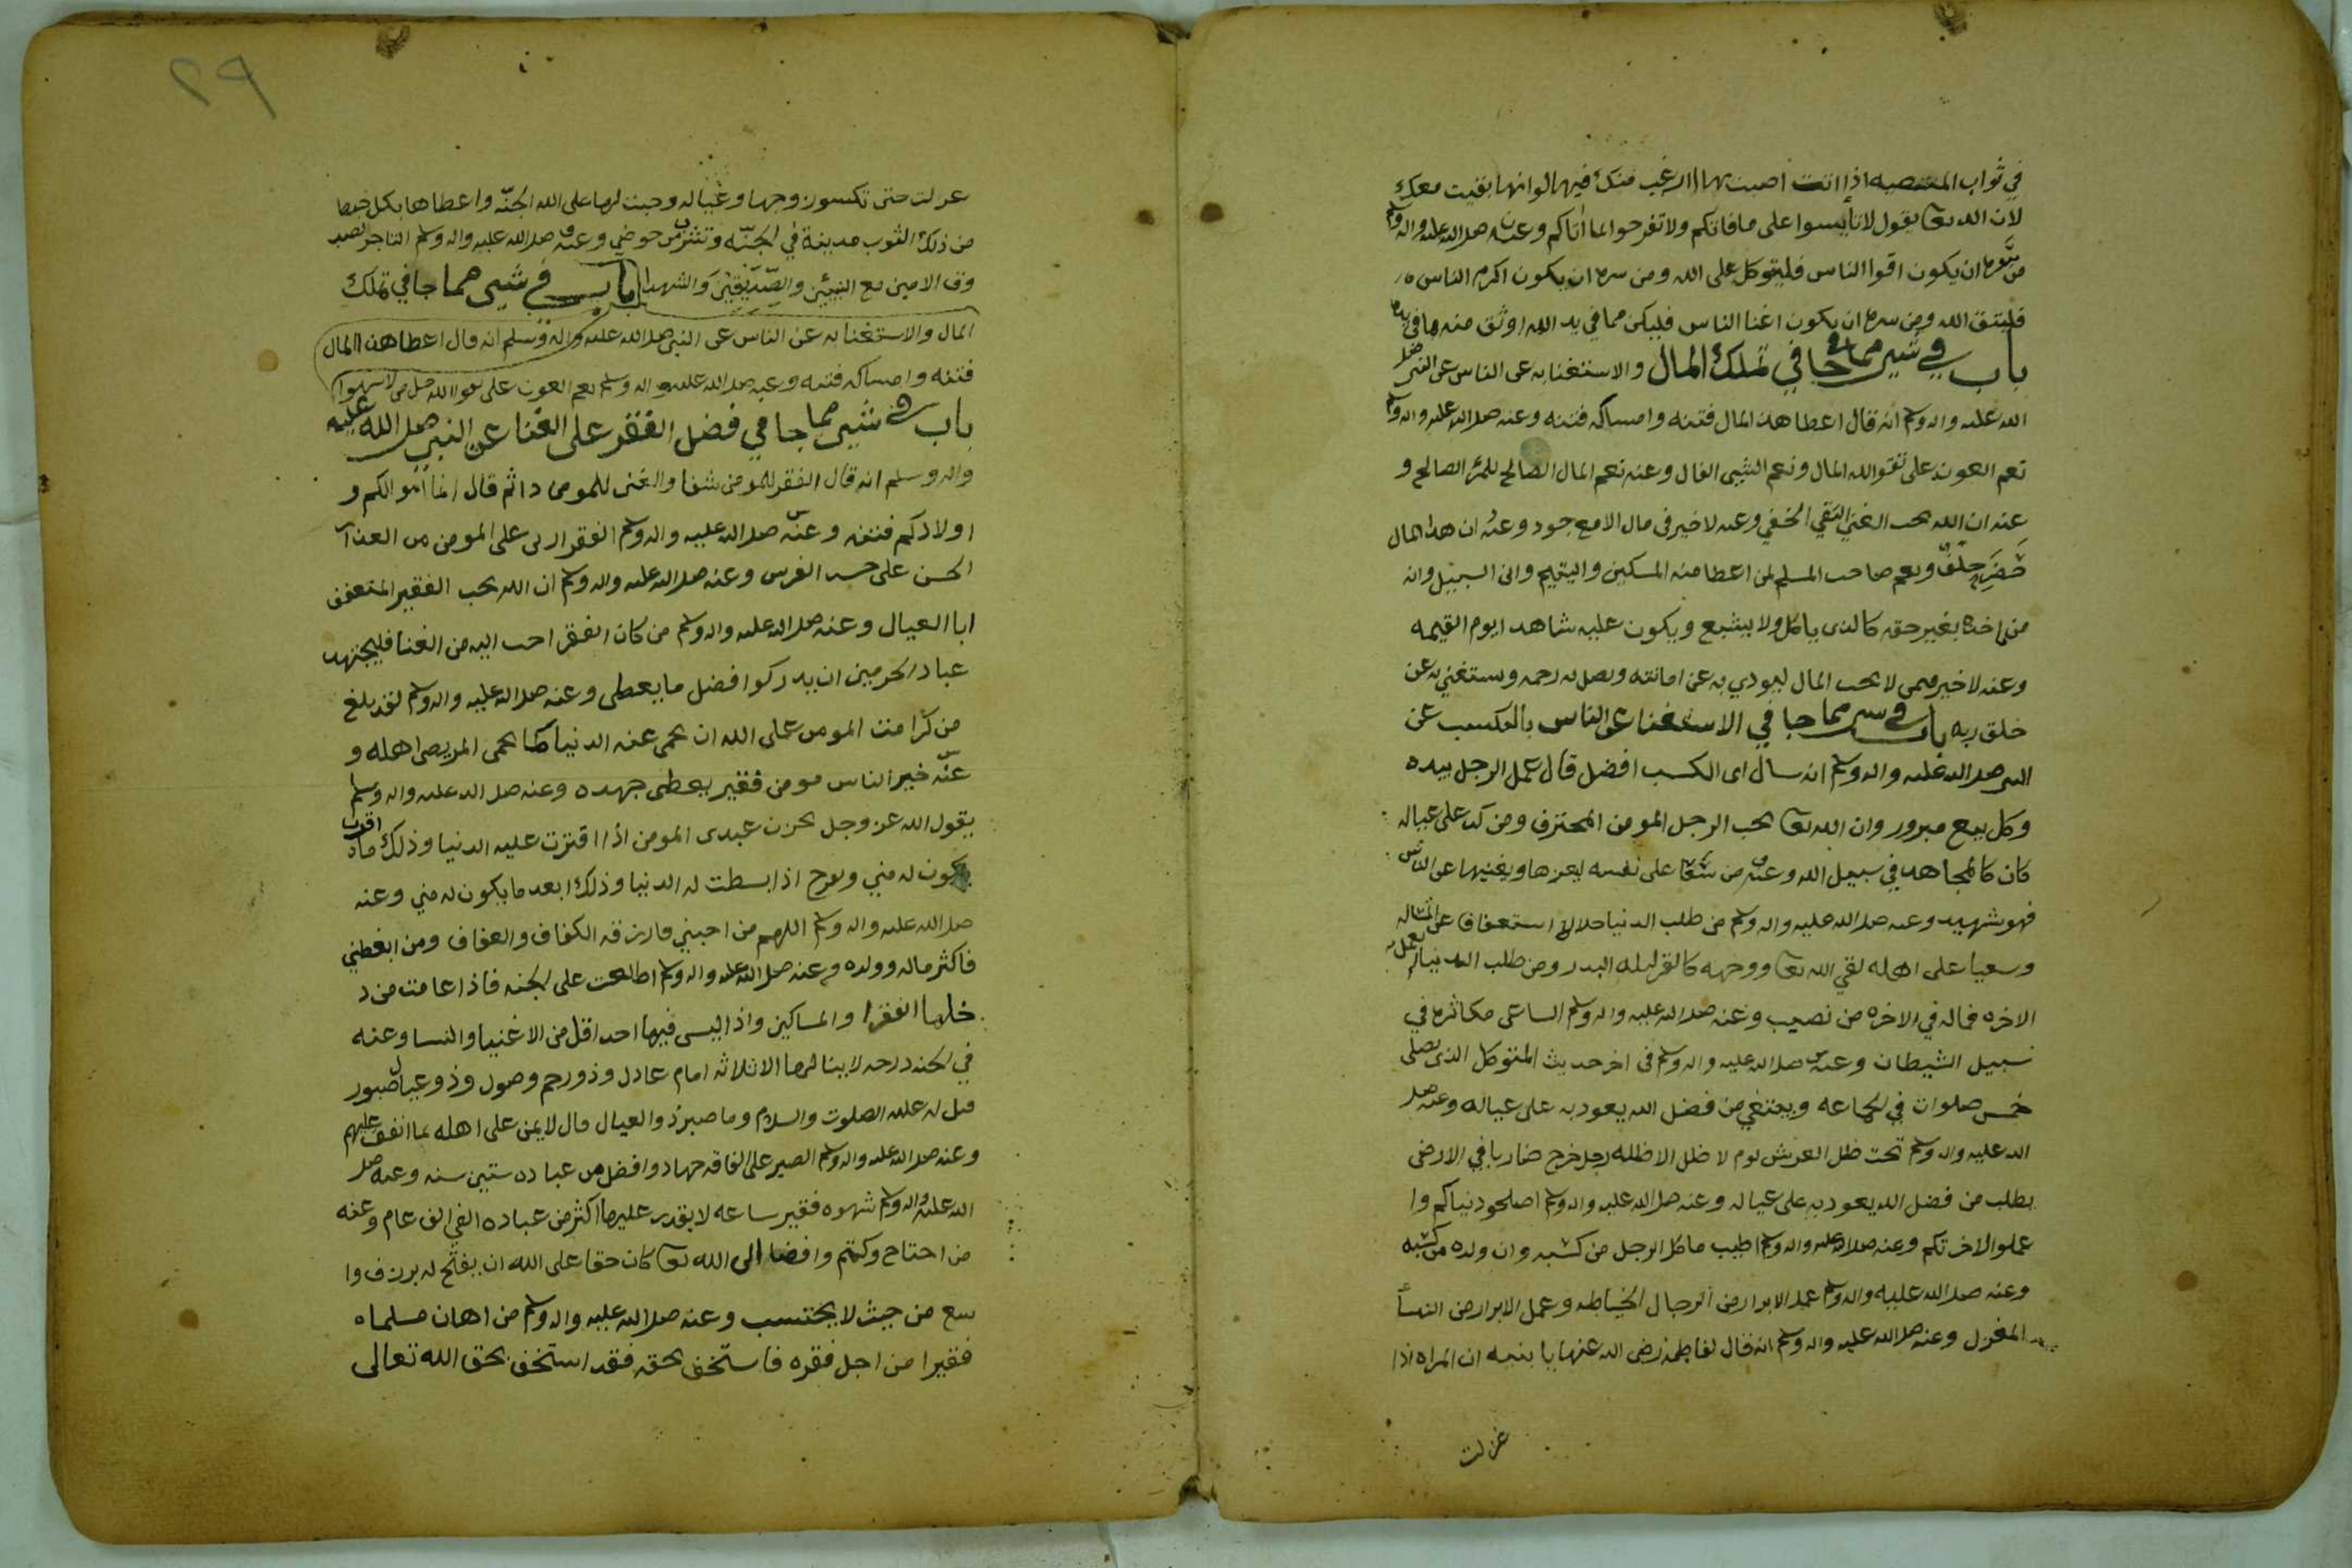 في ثواب المعصيه اذا انت اصبت بها ارغب منك فيها لو انها بقيت معك
لان الله تعا يقول لا تايسوا على ما فاتكم ولا تفرحوا بما اتاكم وعنه صلى الله عليه واله وسلم
من سره ان يكون اقوا الناس فليتوكل على الله ومن سره ان يكون اكرم الناس
فليتق الله ومن سره ان يكون اغنا الناس فليكن مما في يد الله اوثق منه مما في يده
باب في شي مما جا في تملك المال والاستغنا به عن الناس عن النبي صلى
الله عليه واله وسلم انه قال اعطا هذا المال فتنه وامساكه فتنه وعنه صلى الله عليه واله وسلم
نعم العون على تقوا الله المال ونعم الشي الفال وعنه نعم المال الصالح للمرء الصالح و
عنه ان الله يحب الغني التقي الخفي وعنه لا خير في مال الا مع جود وعنه ان هذا المال
خضر حلو ونعم صاحب المسلم لمن اعطا منه المسكين واليتيم وابن السبيل وانه
من اخذه بغير حقه كالذي ياكل ولا يشبع ويكون عليه شاهدا يوم القيمه
وعنه لا خير فيمن لا يحب المال ليودي به عن امانته ويصل به رحمه ويستغني به عن
خلق ربه باب في شي مما جا في الاستغنا عن الناس بالمكسب عن
النبي صلى الله عليه واله وسلم انه سال اى الكسب افضل قال عمل الرجل بيده
وكل بيع مبرور وان الله تعا يحب الرجل المومن المحترف ومن كد على عياله
كان كالمجاهد في سبيل الله وعنه من سعا على نفسه ليعزها ويغنيها عن الناس
فهو شهيد وعنه صلى الله عليه واله وسلم من طلب الدنيا حلالا استعفافا عن المساله
وسعيا على اهله لقي الله تعا ووجهه كالقمر ليله البدر ومن طلب الدنيا بعمل
الاخره فماله في الاخره من نصيب وعنه صلى الله عليه واله وسلم الساعى مكاثره في
سبيل الشيطان وعنه صلى الله عليه واله وسلم في اخر حديث المتوكل الذي يصلى
خمس صلوات في الجماعه ويبتغي من فضل الله يعود به على عياله وعنه صلى
الله عليه واله وسلم تحت ظل العرش يوم لا ظل الا ظله رجل خرج ضاربا في الارض
يطلب من فضل الله يعود به على عياله وعنه صلى الله عليه واله وسلم اصلحو دنياكم وا
عملو الاخرتكم وعنه صلى الله عليه واله وسلم اطيب ما كل الرجل من كسبه وان ولده من كسبه
وعنه صلى الله عليه واله وسلم عمل الابرار من الرجال الخياطه وعمل الابرار من النسا
المغزل وعنه صلى الله عليه واله وسلم انه قال لفاطمه رضى الله عنها يا بنيه ان المراه اذا
غزلت
٢٩
غزلت حتى تكسوزوجها وعياله وجبت لها على الله الجنه واعطاها بكل خيط
من ذلك الثوب مدينة في الجنه وتشرب من حوضي وعنه صلى الله عليه واله وسلم التاجر الصد
وق الامين مع النبيين والصديقين والشهدا باب في شي مما جا في تملك
المال والاستغنا به عن الناس عن النبي صلى الله عليه واله وسلم انه قال اعطا هذا المال
فتنه وامساكه فتنه وعنه صلى الله عليه واله وسلم نعم العون على تقوا الله
باب في شي مما جا في فضل الفقر على الغنا عن النبي صلى الله عليه
واله وسلم انه قال الفقر للمومن شفا والغنى للمومن دا ثم قال انما اموالكم و
اولادكم فتنه وعنه صلى الله عليه واله وسلم الفقر ازين على المومن من العذار
الحسن على خد الفرس وعنه صلى الله عليه واله وسلم ان الله يحب الفقير المتعفف
ابا العيال وعنه صلى الله عليه واله وسلم من كان الفقر احب اليه من الغنا فليجتهد
عباد الحرمين ان يدركوا افضل ما يعطى وعنه صلى الله عليه واله وسلم لقد بلغ
من كرامت المومن على الله ان يحمى عنه الدنيا كما يحمى المريض اهله و
عنه خير الناس مومن فقير يعطى جهده وعنه صلى الله عليه واله وسلم
يقول الله عز وجل يحزن عبدى المومن اذا اقترت عليه الدنيا وذلك اقرب ما
يكون له مني ويفرح اذا بسطت له الدنيا وذلك ابعد ما يكون له مني وعنه
صلى الله عليه واله وسلم اللهم من احبني فارزقه الكفاف والعفاف ومن ابغضني
فاكثر ماله وولده وعنه صلى الله عليه واله وسلم اطلعت على الجنه فاذا عامت من د
خلها الفقرا والمساكين واذا ليس فيها احد اقل من الاغنيا والنسا وعنه
في الجنه درجه لا ينالها الا ثلاثه امام عادل وذو رحم وصول وذو عيال صبور
قيل له عليه الصلوت والسلام وما صبر ذو العيال قال لا يمن على اهله بما انفق عليهم
وعنه صلى الله عليه واله وسلم الصبر على الفاقه جهاد وافضل من عباده ستين سنه وعنه صلى
الله عليه واله وسلم شهوه فقير ساعه لا يقدر عليها اكثر من عباده الغني الف عام وعنه
من احتاج وكتم وافضا الى الله تعا كان حقا على الله ان يفتح له برزق وا
سع من حيث لا يحتسب وعنه صلى الله عليه واله وسلم من اهان مسلما
فقيرا من اجل فقره فاستخف بحقه فقد استخف بحق الله تعالى